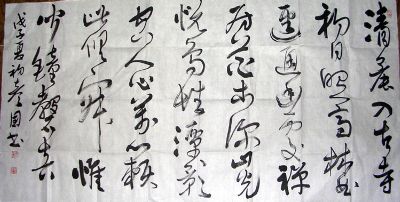 清晨入古寺
初日照高林曲
径通幽处禅
房花木深山光
悦鸟性潭影
空人心萬籁
此俱寂惟
鐘磬音
戊子夏初彦国书